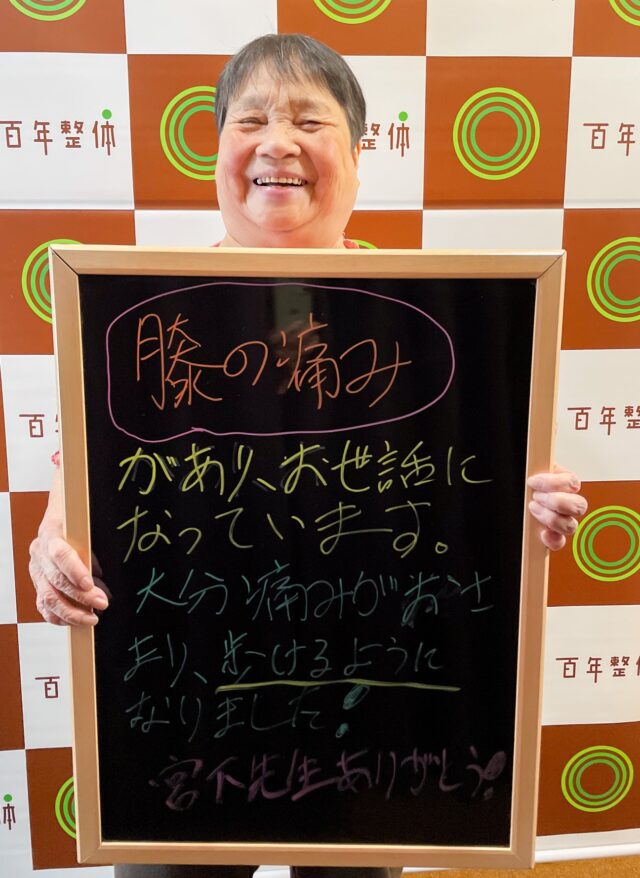 百年整体
百年整体
百年
膝の痛み
があり、お世話に
なっています。
大分痛みがおさ
まり、歩けるように
なりました!
宮下先生ありがとう!
百年
百年整
百年整体
百
体